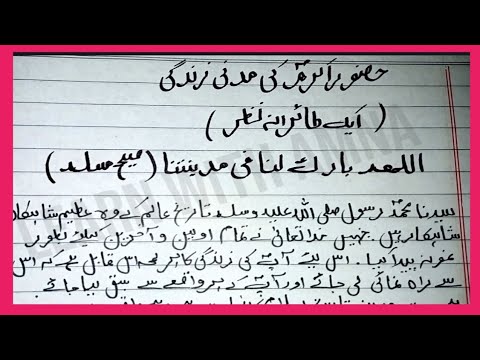 حضور اکرمؐ کی مدنی زندگی
(ایک طائرانہ نظر)
اللھم بارک لنا فی مدینتنا (صحیح مسلم)
سیدنا محمدؐ رسول صلی اللہ علیہ وسلم تاریخ عالم کے وہ عظیم شاہکار
شاہکار ہیں۔ جنہیں خدا تعالیٰ نے تمام اولین و آخرین کیلئے بطور
نمونہ پیدا کیا۔ اس لیے آپؐ کی زندگی کا ہر لمحہ اس قابل ہے کہ اس
سے راہ نمائی لی جائے اور آپؐ کے ہر واقعے سے سبق لیا جائے۔
LEARN WITH AMNA